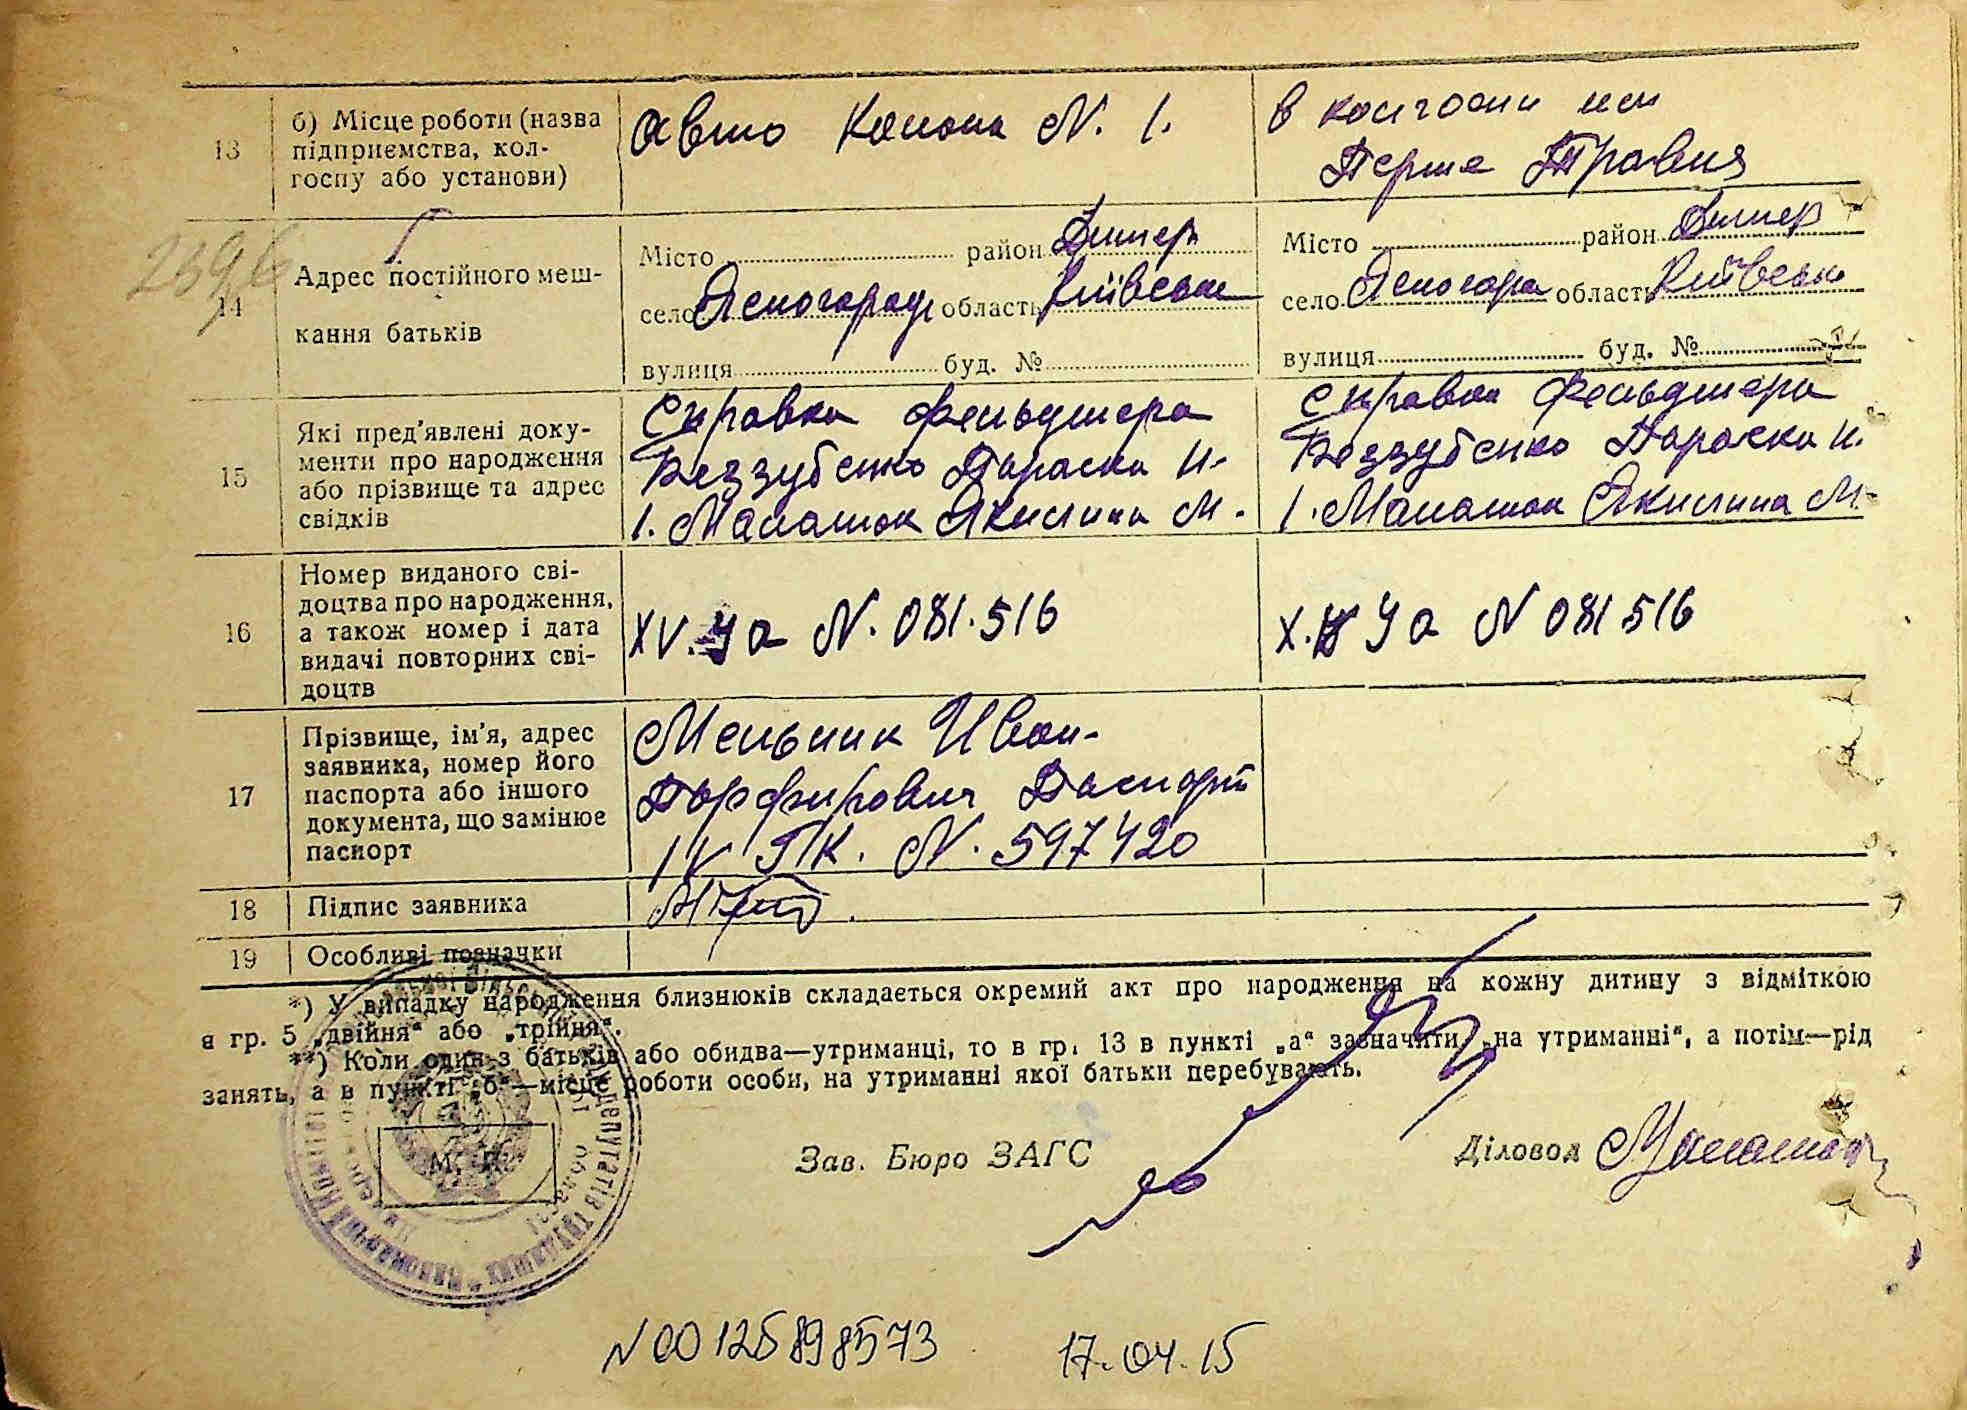 13
б) Місце роботи (назва
підприємства, кол-
госпу або установи)
Авто Колона N. 1.
в колгоспи им
Перше Травня
2396
14
Адрес постійного меш-
кання батьків
Місто район Димер
село Ясногород область Київське
вулиця буд. №
Місто район Димер
село Ясногора область Київська
вулиця буд. №
15
Які пред'явлені доку-
менти про народження
або прізвище та адрес
свідків
Справка фельдшера
Беззубенко Параска И.
1. Малашок Якилина М.
Справка фельдшера
Беззубенко Параска И.
1. Малашок Якилина М.
16
Номер виданого сві-
доцтва про народження,
а також номер і дата
видачі повторних сві-
доцтв
XV. Уа N. 081.516
Уа N 081516
17
Прізвище, ім'я, адрес
заявника, номер його
паспорта або іншого
документа, що замінює
паспорт
Мельник Иван
Порфирович Паспорт
IV ПК. N. 597420
18
Підпис заявника
19
Особливі позначки
*) У випадку народження близнюків складається окремий акт про народження на кожну дитину з відміткою
в гр. 5 „двійня" або „трійня".
**) Коли один з батьків або обидва—утриманці, то в гр. 13 в пункті „а" зазначити „на утриманні", а потім—рід
занять, а в пункті „б"—місце роботи особи, на утриманні якої батьки перебувають.
М. П.
Зав. Бюро ЗАГС
Діловод Малашок
N00125898573
17.04.15